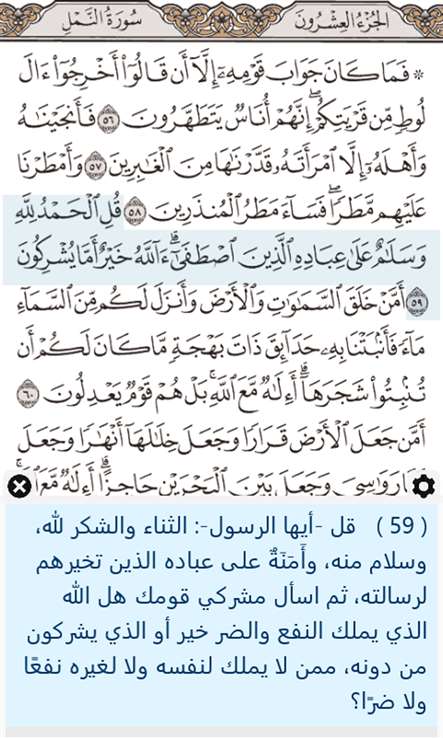 الجزء العشرون
سورة النمل
* فَمَا كَانَ جَوَابَ قَوْمِهِۦٓ إِلَّآ أَن قَالُوٓا۟ أَخْرِجُوٓا۟ ءَالَ
لُوطٍ مِّن قَرْيَتِكُمْ ۖ إِنَّهُمْ أُنَاسٌ يَتَطَهَّرُونَ ٥٦ فَأَنجَيْنَٰهُ
وَأَهْلَهُۥٓ إِلَّا ٱمْرَأَتَهُۥ قَدَّرْنَٰهَا مِنَ ٱلْغَٰبِرِينَ ٥٧ وَأَمْطَرْنَا
عَلَيْهِم مَّطَرًا ۖ فَسَآءَ مَطَرُ ٱلْمُنذَرِينَ ٥٨ قُلِ ٱلْحَمْدُ لِلَّهِ
وَسَلَٰمٌ عَلَىٰ عِبَادِهِ ٱلَّذِينَ ٱصْطَفَىٰٓ ۗ ءَآللَّهُ خَيْرٌ أَمَّا يُشْرِكُونَ
٥٩ أَمَّنْ خَلَقَ ٱلسَّمَٰوَٰتِ وَٱلْأَرْضَ وَأَنزَلَ لَكُم مِّنَ ٱلسَّمَآءِ
مَآءً فَأَنۢبَتْنَا بِهِۦ حَدَآئِقَ ذَاتَ بَهْجَةٍ مَّا كَانَ لَكُمْ أَن
تُنۢبِتُوا۟ شَجَرَهَآ ۗ أَءِلَٰهٌ مَّعَ ٱللَّهِ ۚ بَلْ هُمْ قَوْمٌ يَعْدِلُونَ ٦٠
أَمَّن جَعَلَ ٱلْأَرْضَ قَرَارًا وَجَعَلَ خِلَٰلَهَآ أَنْهَٰرًا وَجَعَلَ
رَوَٰسِىَ وَجَعَلَ بَيْنَ ٱلْبَحْرَيْنِ حَاجِزًا ۗ أَءِلَٰهٌ مَّعَ
( 59 ) قل -أيها الرسول-: الثناء والشكر لله،
وسلام منه، وأَمَنَةٌ على عباده الذين تخيرهم
لرسالته، ثم اسأل مشركي قومك هل الله
الذي يملك النفع والضر خير أو الذي يشركون
من دونه، ممن لا يملك لنفسه ولا لغيره نفعًا
ولا ضرًا؟